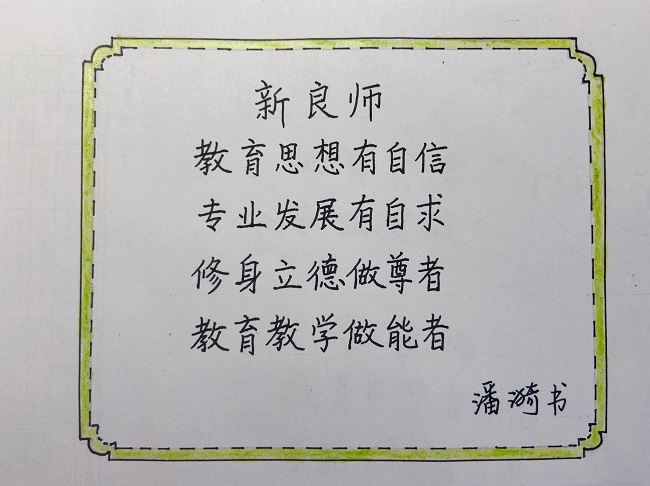 新良师
教育思想有自信
专业发展有自求
修身立德做尊者
教育教学做能者
潘漪书